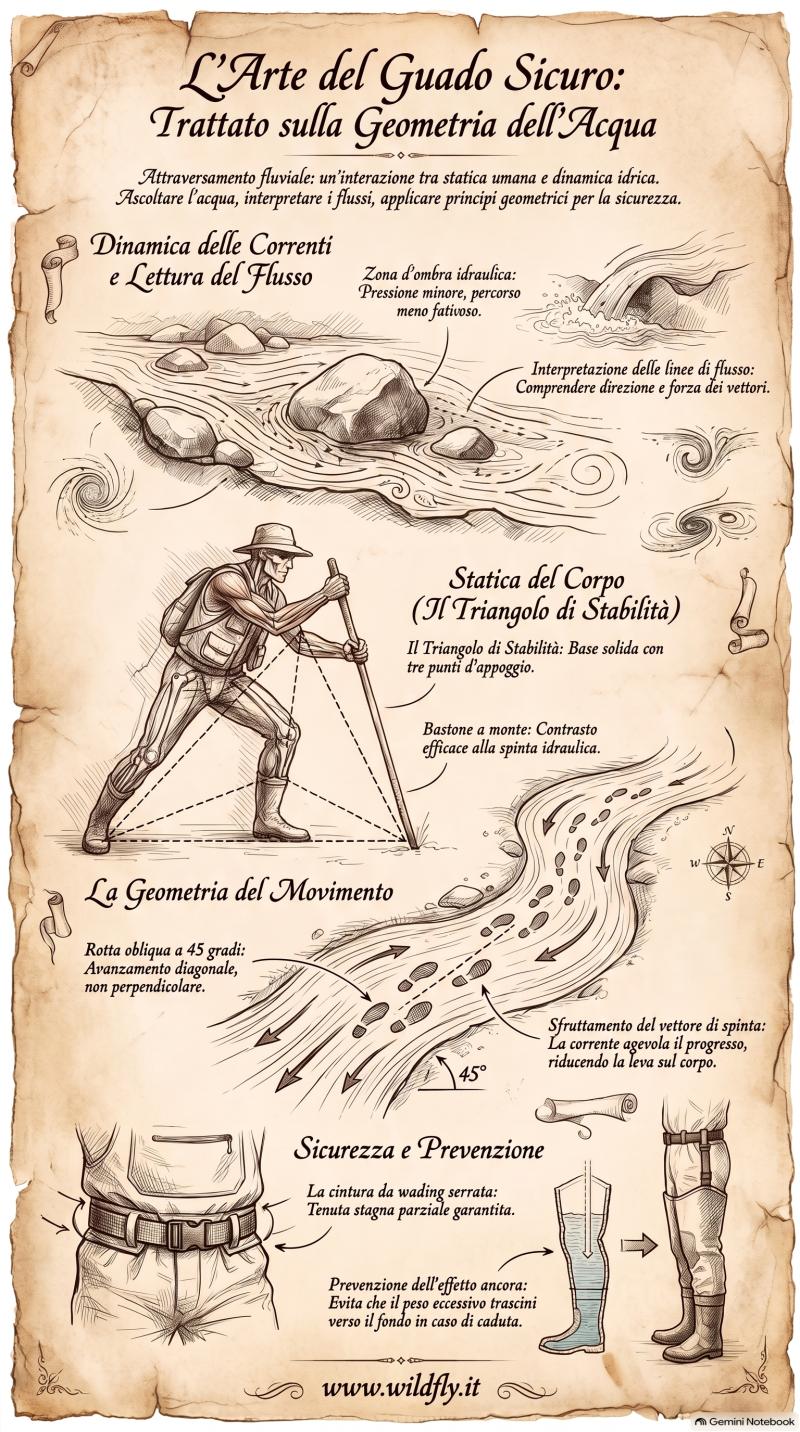 L'Arte del Guado Sicuro:
Trattato sulla Geometria dell'Acqua
Attraversamento fluviale: un'interazione tra statica umana e dinamica idrica.
Ascoltare l'acqua, interpretare i flussi, applicare principi geometrici per la sicurezza.
Dinamica delle Correnti
e Lettura del Flusso
Zona d'ombra idraulica:
Pressione minore, percorso
meno fativoso.
Interpretazione delle linee di flusso:
Comprendere direzione e forza dei vettori.
Statica del Corpo
(Il Triangolo di Stabilità)
Il Triangolo di Stabilità: Base solida con
tre punti d'appoggio.
Bastone a monte: Contrasto
efficace alla spinta idraulica.
N
W E
S
La Geometria del Movimento
Rotta obliqua a 45 gradi:
Avanzamento diagonale,
non perpendicolare.
Sfruttamento del vettore di spinta:
La corrente agevola il progresso,
riducendo la leva sul corpo.
45°
Sicurezza e Prevenzione
La cintura da wading serrata:
Tenuta stagna parziale garantita.
Prevenzione dell'effetto ancora:
Evita che il peso eccessivo trascini
verso il fondo in caso di caduta.
www.wildfly.it
Gemini Notebook